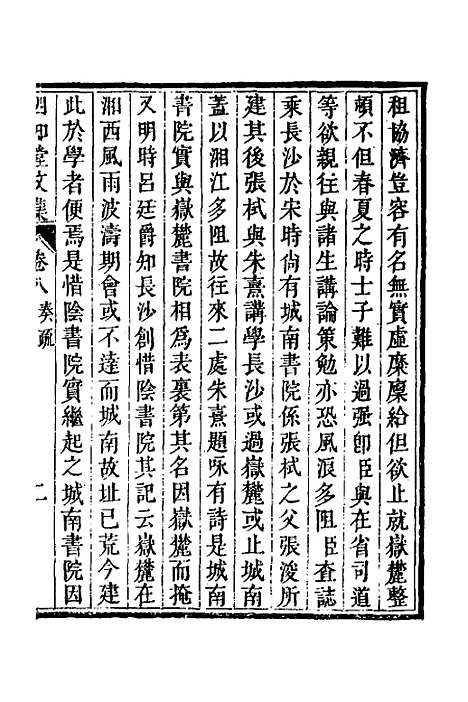 租協濟豈容有名無實虛糜廩給但欲止就嶽麓整
頓不但春夏之時士子難以過强卽臣與在省司道
等欲親往與諸生講論策勉亦恐風浪多阻臣查誌
乘長沙於宋時尙有城南書院係張栻之父張浚所
建其後張栻與朱熹講學長沙或過嶽麓或止城南
蓋以湘江多阻故往來二處朱熹題咏有詩是城南
書院實與嶽麓書院相爲表裏第其名因嶽麓而掩
又明時呂廷爵知長沙創惜陰書院其記云嶽麓在
湘西風雨波濤期會或不達而城南故址已荒今建
此於學者便焉是惜陰書院實繼起之城南書院因
四知堂文集 卷八 奏疏 二